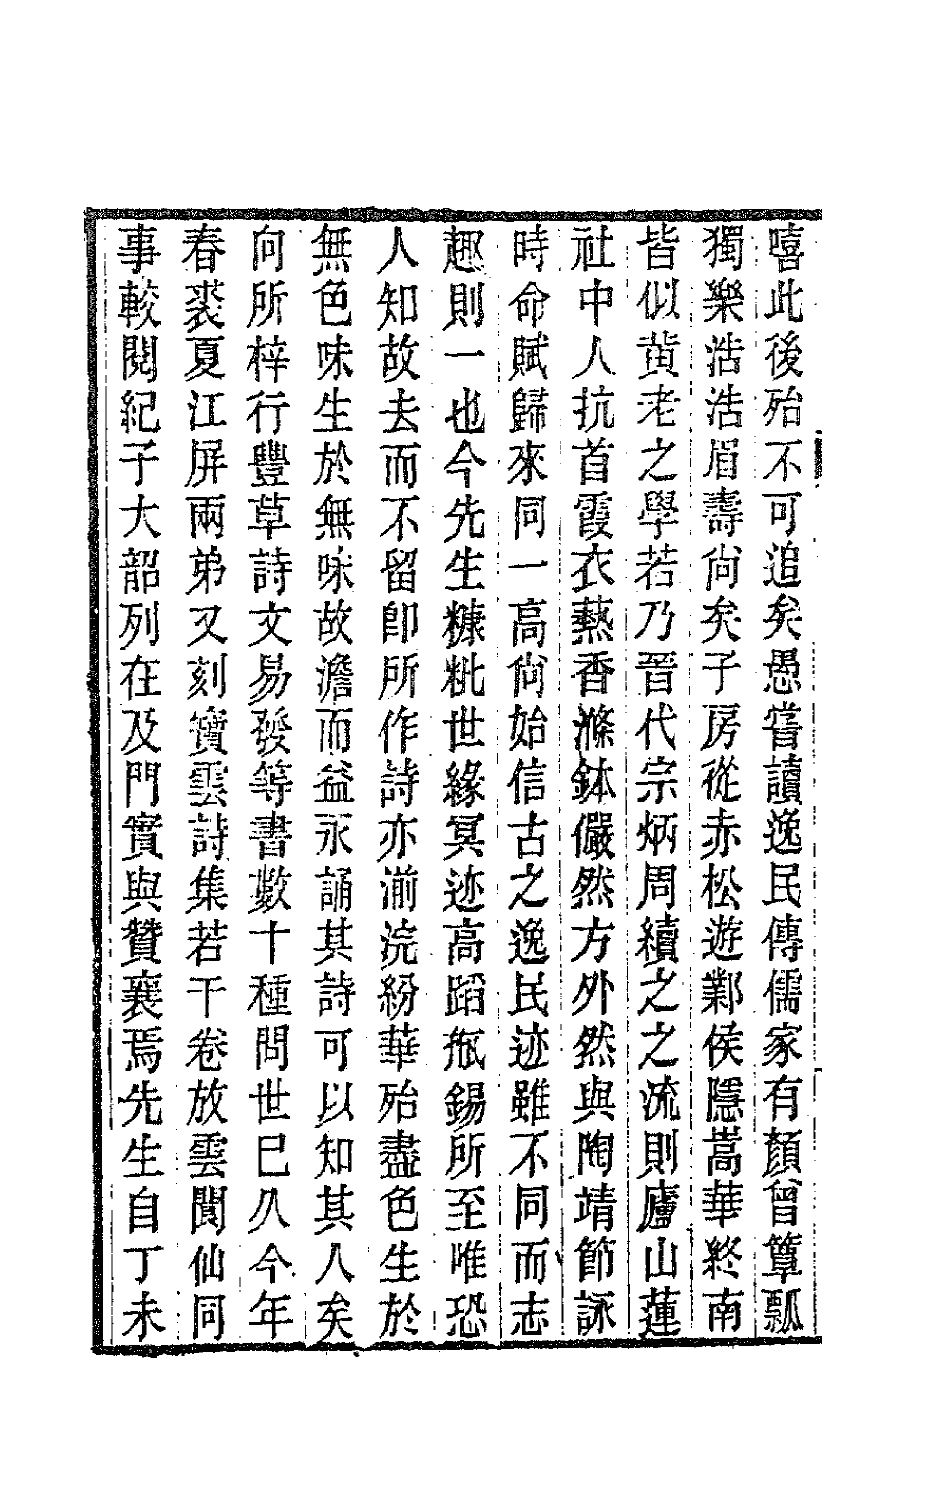 嘻此後殆不可追矣愚嘗讀逸民傳儒家有顏曾簞瓢
獨樂浩浩眉壽尙矣子房從赤松遊鄴侯隱嵩華終南
皆似黄老之學若乃晉代宗炳周續之之流則廬山蓮
社中人抗首霞衣爇香滌鉢儼然方外然與陶靖節詠
時命賦歸來同一高尙始信古之逸民迹雖不同而志
趣則一也今先生糠粃世緣冥迹高蹈瓶錫所至唯恐
人知故去而不留卽所作詩亦湔浣紛華殆盡色生於
無色味生於無味故澹而益永誦其詩可以知其人矣
向所梓行豐草詩文易發等書數十種問世巳久今年
春裘夏江屏兩弟又刻寶雲詩集若干卷放雲閬仙同
事較閱紀子大韶列在及門實與贊襄焉先生自丁未